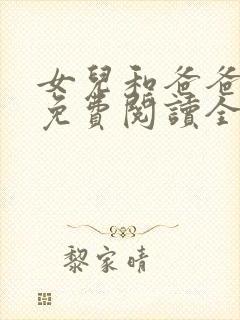 女兒和爸爸
免費閱讀全
黎家晴